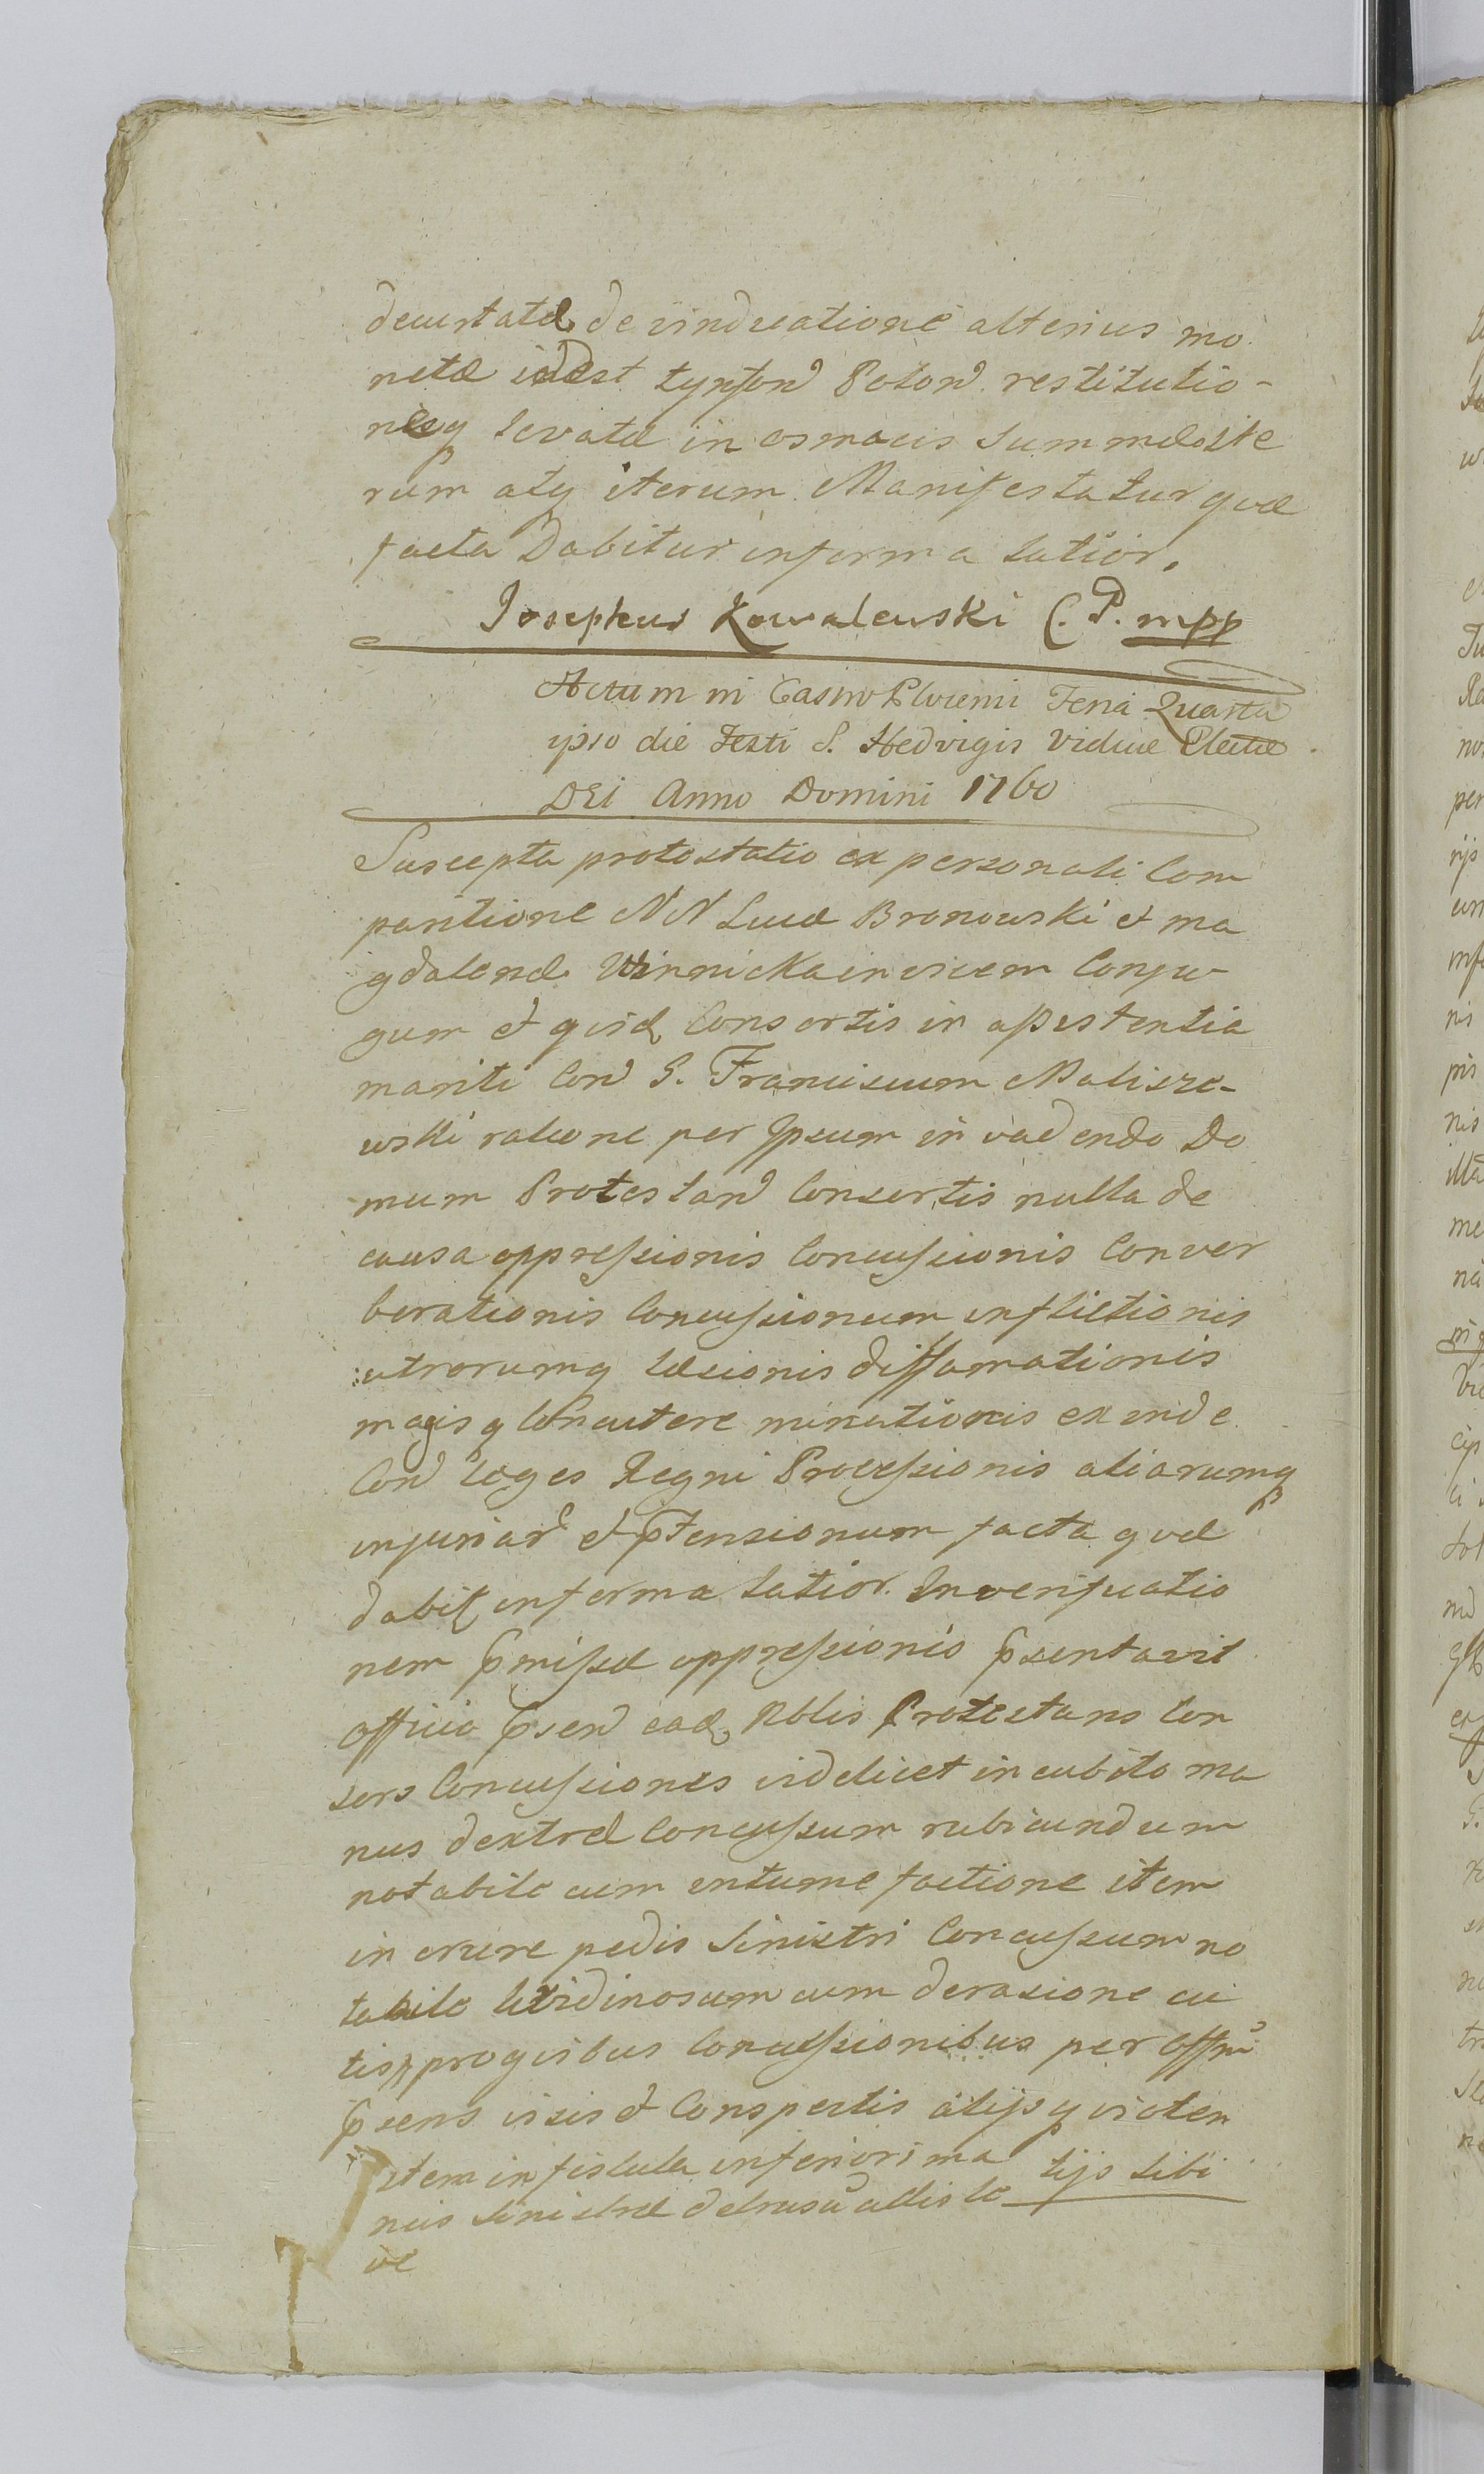 decurtatæ de vindicatione alterius mo
netæ idest tynfon Polon restitutio-
neq levatæ in osmacis summæ ite
rum atq iterum Manifestatur quæ
facta Dabitur in forma latior.
Josephus Kowalewski C. P. mpp
Actum in Castro Plocensi Feria Quarta
ipso die Festi S. Hedvigis Viduæ Electæ
DEI Anno Domini 1760
Suscepta protestatio ex personali Com
paritione NN Lucæ Bronowski et ma
gdalenæ Winnicka invicem Conju-
gum et quid Consortis in assistentia
mariti Con G. Franciscum Malisze-
wski ratione per Ipsum invadendo Do
mum Protestan Consortis nulla de
causa oppressionis Concussionis Conver
berationis Concussionum inflictionis
utrorumq læsionis diffamationis
magisq Concutere minationis exinde
Con leges Regni Processionis aliarumq
injuriar et ptensionum facta quæ
dabit in forma latior. In verificatio
nem pmissæ oppressionis psentavit
officio psen ead Nblis Protestans Con
sors Concussiones videlicet in cubito ma
nus dextræ Concussum rubicundum
notabile cum intumefactione item
in crure pedis sinistri Concussum no
tabile lividinosum cum derasione cu
tis pro quibus Concussionibus per Offm
psens visis et Conspectis alijsq violen
item in fistula inferiori ma tijs sibi
nus sinistræ detrusũ cutis le
ve